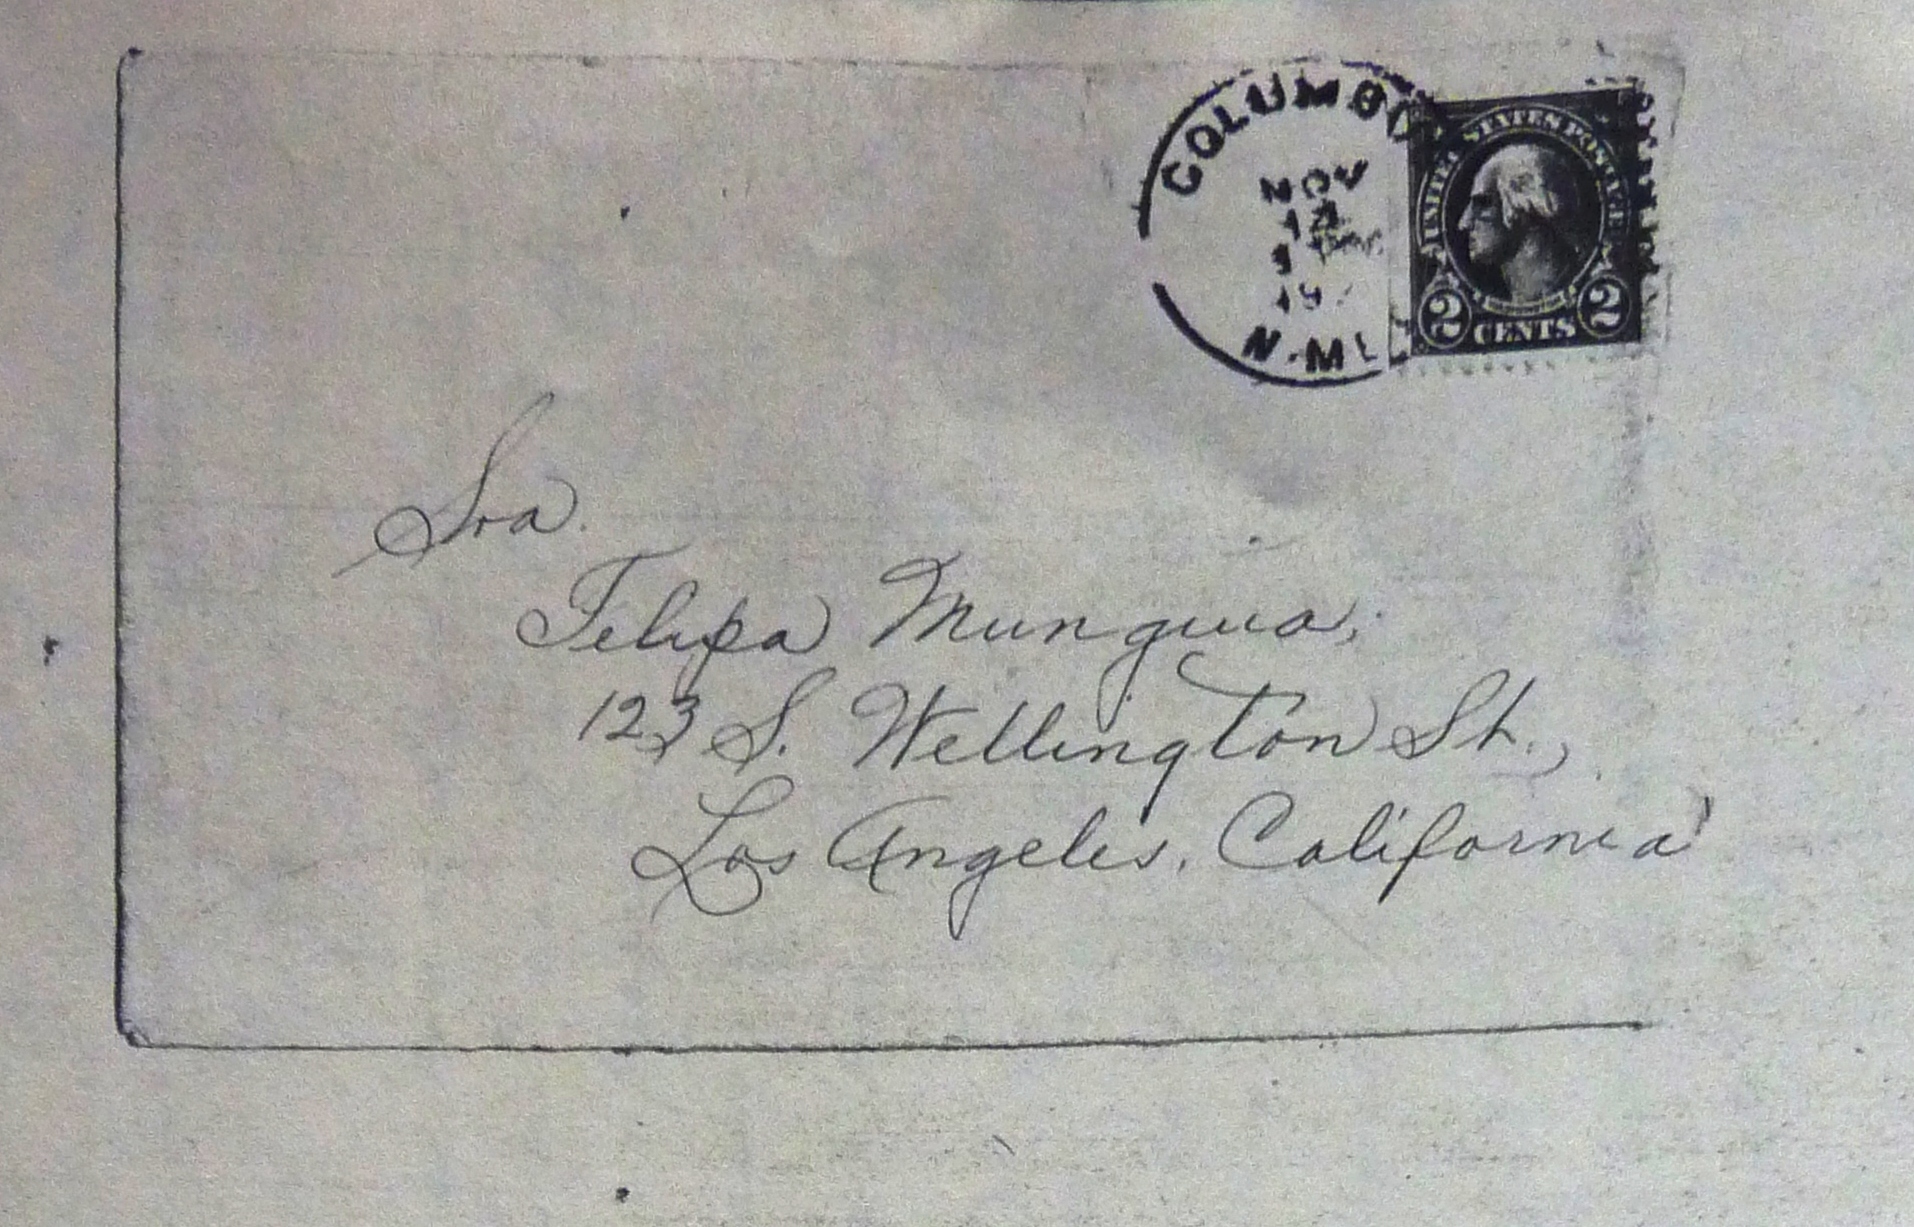 COLUMBU
NOV
N. MEX
UNITED STATES POSTAGE
2 CENTS 2
Sra.
Felipa Munguia,
123 S. Wellington St.,
Los Angeles, California